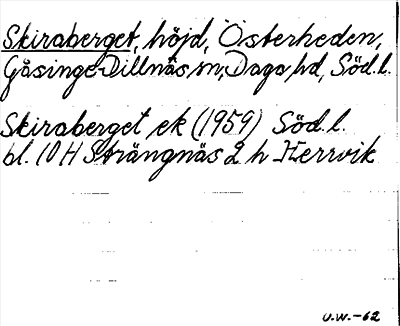 Skiraberget, höjd, Österheden,
Gåsinge-Dillnäs sn, Daga hd, Söd.l.
Skiraberget ek (1959) Söd.l.
bl. 10 H Strängnäs 2 h Herrvik
U.W.-62